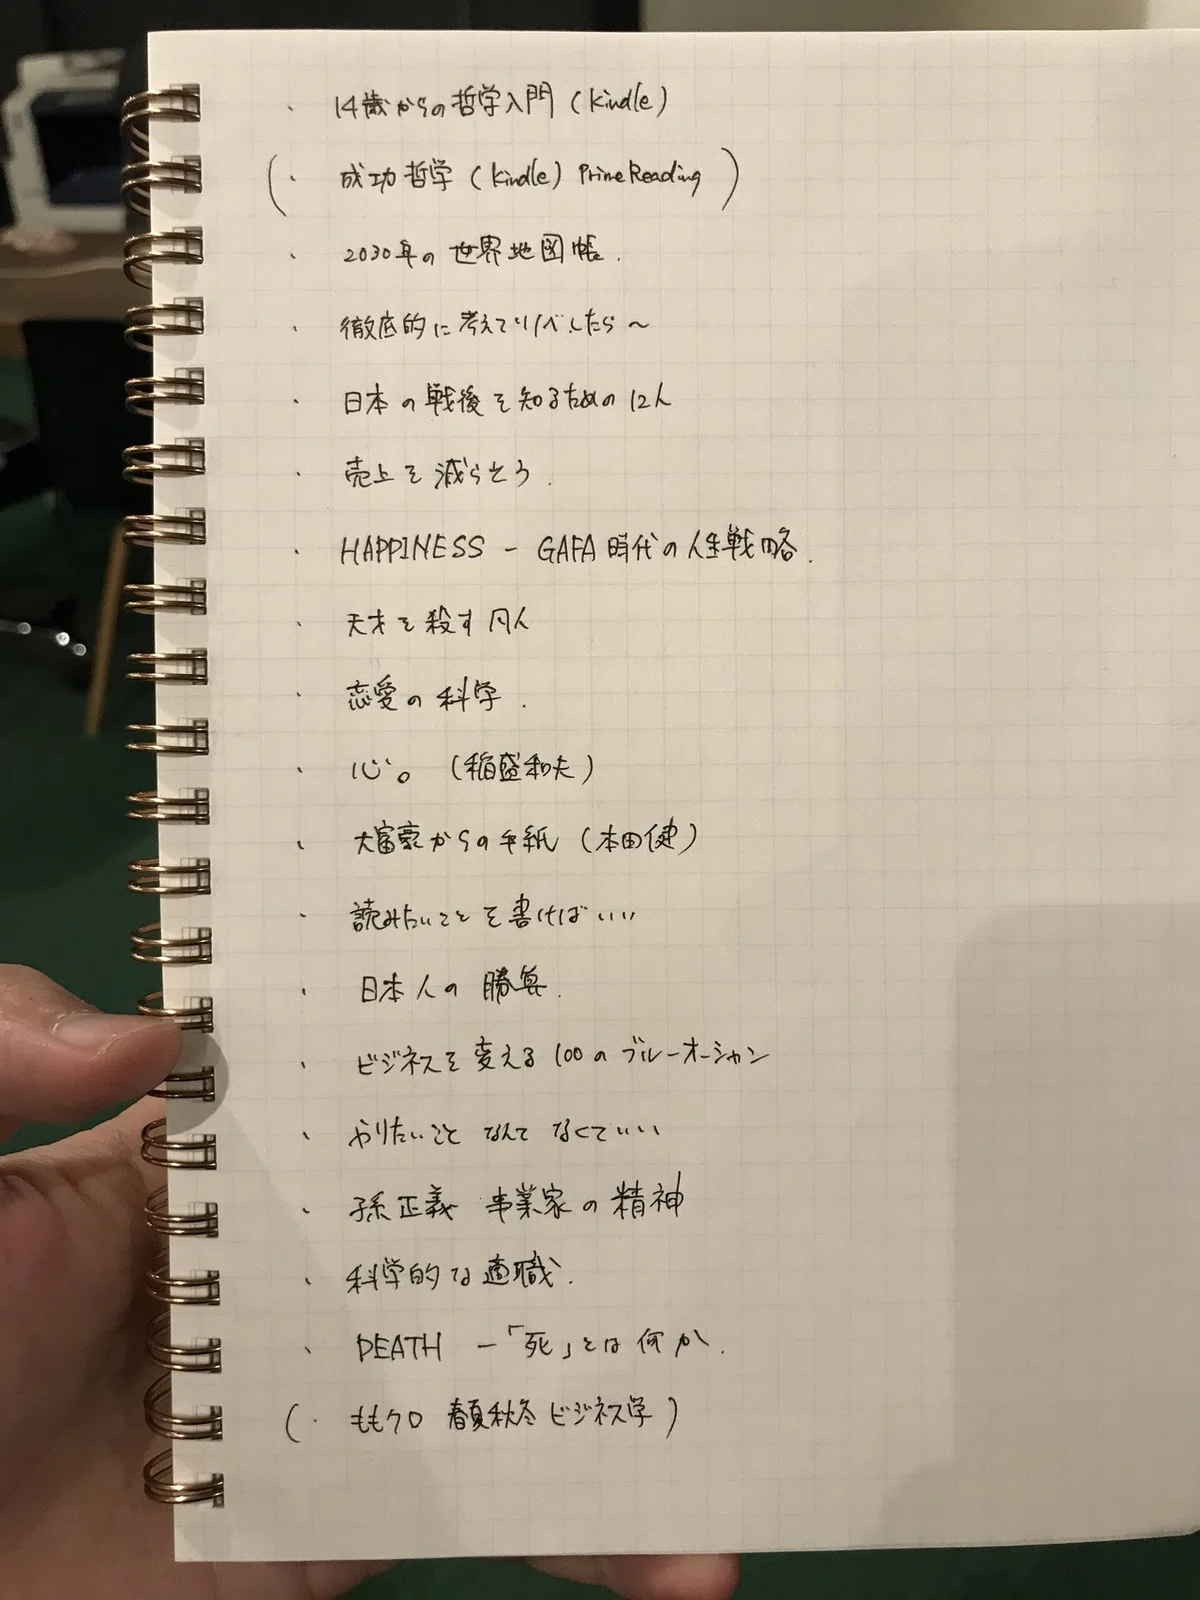 ・ 14歳からの哲学入門 (Kindle)
(・ 成功哲学 (Kindle) PrimeReading )
・ 2030年の世界地図帳.
・ 徹底的に考えてリノベしたら〜
・ 日本の戦後を知るための12人
・ 売上を減らそう.
・ HAPPINESS - GAFA時代の人生戦略.
・ 天才を殺す凡人
・ 恋愛の科学.
・ 心。 (稲盛和夫)
・ 大富豪からの手紙 (本田健)
・ 読みたいことを書けばいい
・ 日本人の勝算.
・ ビジネスを変える100のブルーオーシャン
・ やりたいことなんてなくていい
・ 孫正義 事業家の精神
・ 科学的な適職.
・ DEATH -「死」とは何か.
(・ ももクロ 春夏秋冬ビジネス学 )